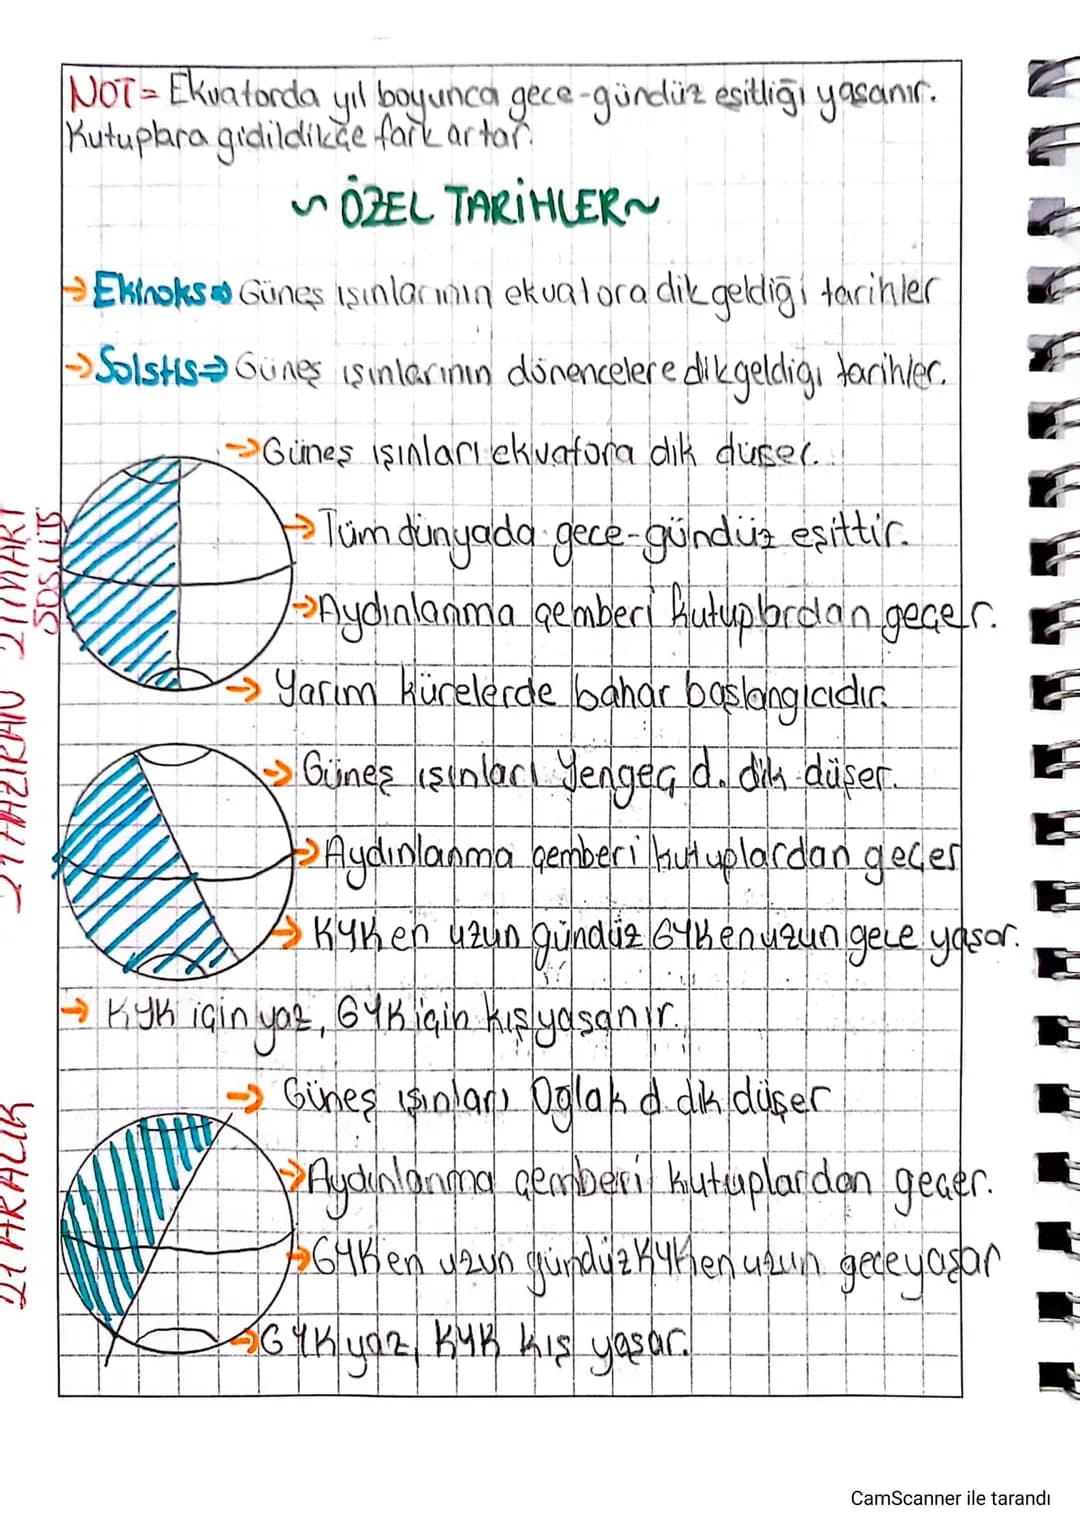 NOT= Ekvatorda yıl boyunca gece-gündüz eşitliği yaşanır.
Kutuplara gidildikçe fark artar.
~ ÖZEL TARİHLER~
→Ekinoks⇒ Güneş ışınlarının ekvatora dik geldiği tarihler
→Solstis⇒ Güneş ışınlarının dönencelere dik geldiği tarihler.
→Güneş ışınları ekvatora dik düşer.
→Tüm dünyada gece-gündüz eşittir.
→Aydınlanma çemberi kutuplardan geçer.
→ Yarım kürelerde bahar başlangıcıdır.
21 MART
→ Güneş ışınları Yengeç d. dik düşer.
→Aydınlanma çemberi kutuplardan geçer
→ KYK en uzun gündüz GYK en uzun gece yaşar.
→ KYK için yaz, GYK için kış yaşanır.
21 HAZİRAN
→ Güneş ışınları Oğlak d. dik düşer
→Aydınlanma çemberi kutuplardan geçer.
→GYK en uzun gündüz KYK en uzun gece yaşar
→GYK yaz, KYK kış yaşar.
21 ARALIK
CamScanner ile tarandı